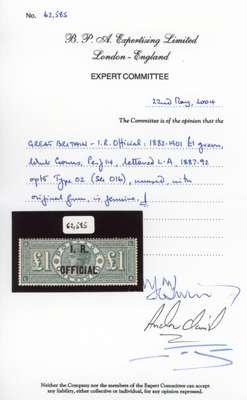 No. 62,585
B. P. A. Expertising Limited
London - England
EXPERT COMMITTEE
22nd May, 2004
The Committee is of the opinion that the
GREAT BRITAIN - I.R. Official: 1882-1901 £1 green,
Crowns, Perf 14, lettered L-A, 1887-92
opt'd Type 02 (SG O16), unused, with
original gum, is genuine.
62,585
£1
£1
I. R.
OFFICIAL
Neither the Company nor the members of the Expert Committee can accept
any liability, either collective or individual, for any opinion expressed.